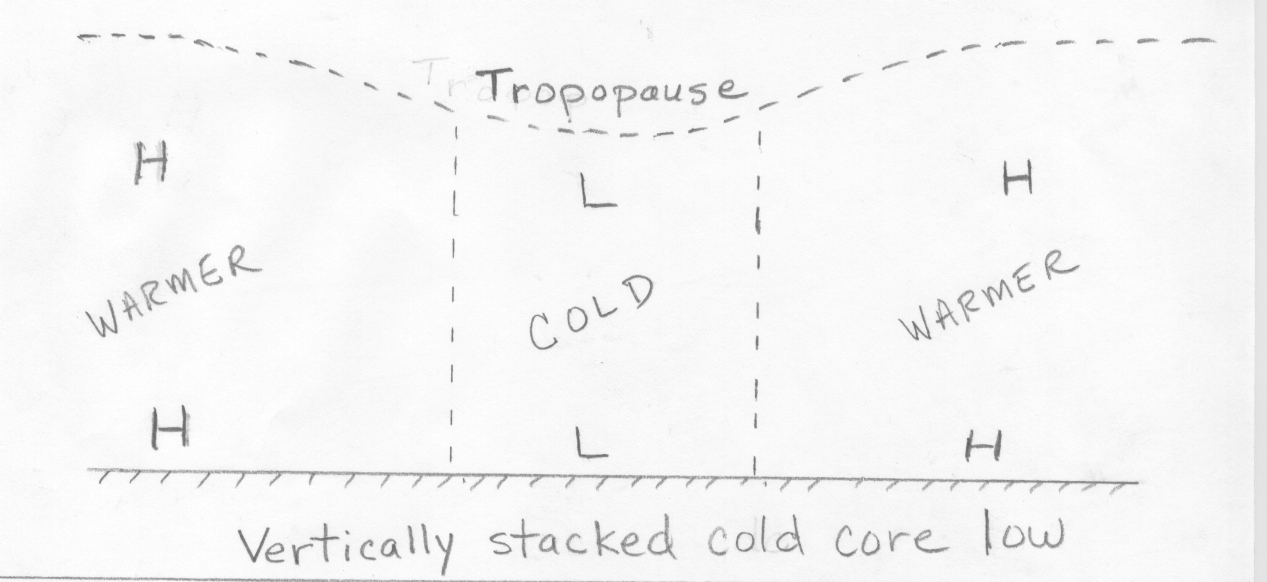 Tropopause
H L H
WARMER COLD WARMER
H L H
Vertically stacked cold core low